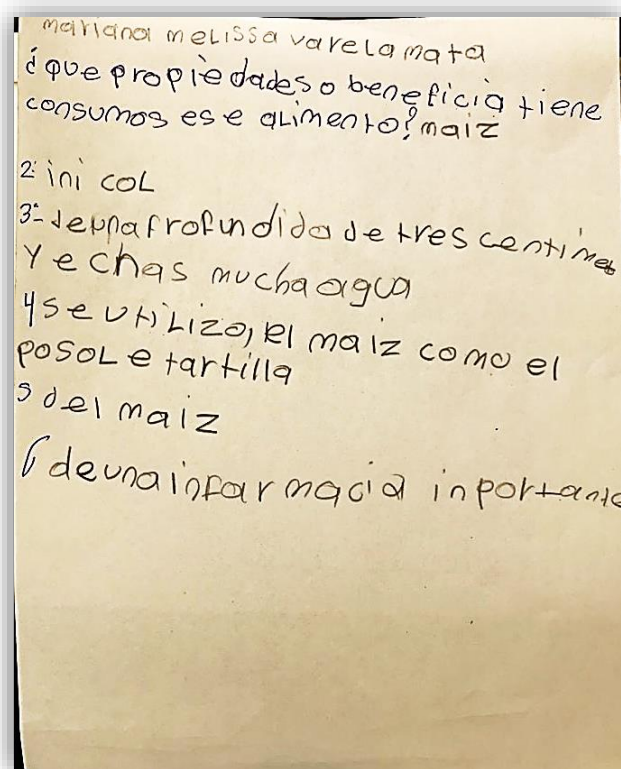 mariana melissa varela mata
¿que propiedades o beneficia tiene
consumos ese alimento? maiz
2: ini col
3: deuna frofundida de tres centime
Y echas mucha agua
4 se utilizo, el maiz como el
posol e tartilla
5 del maiz
6 deuna infarmacia inportante